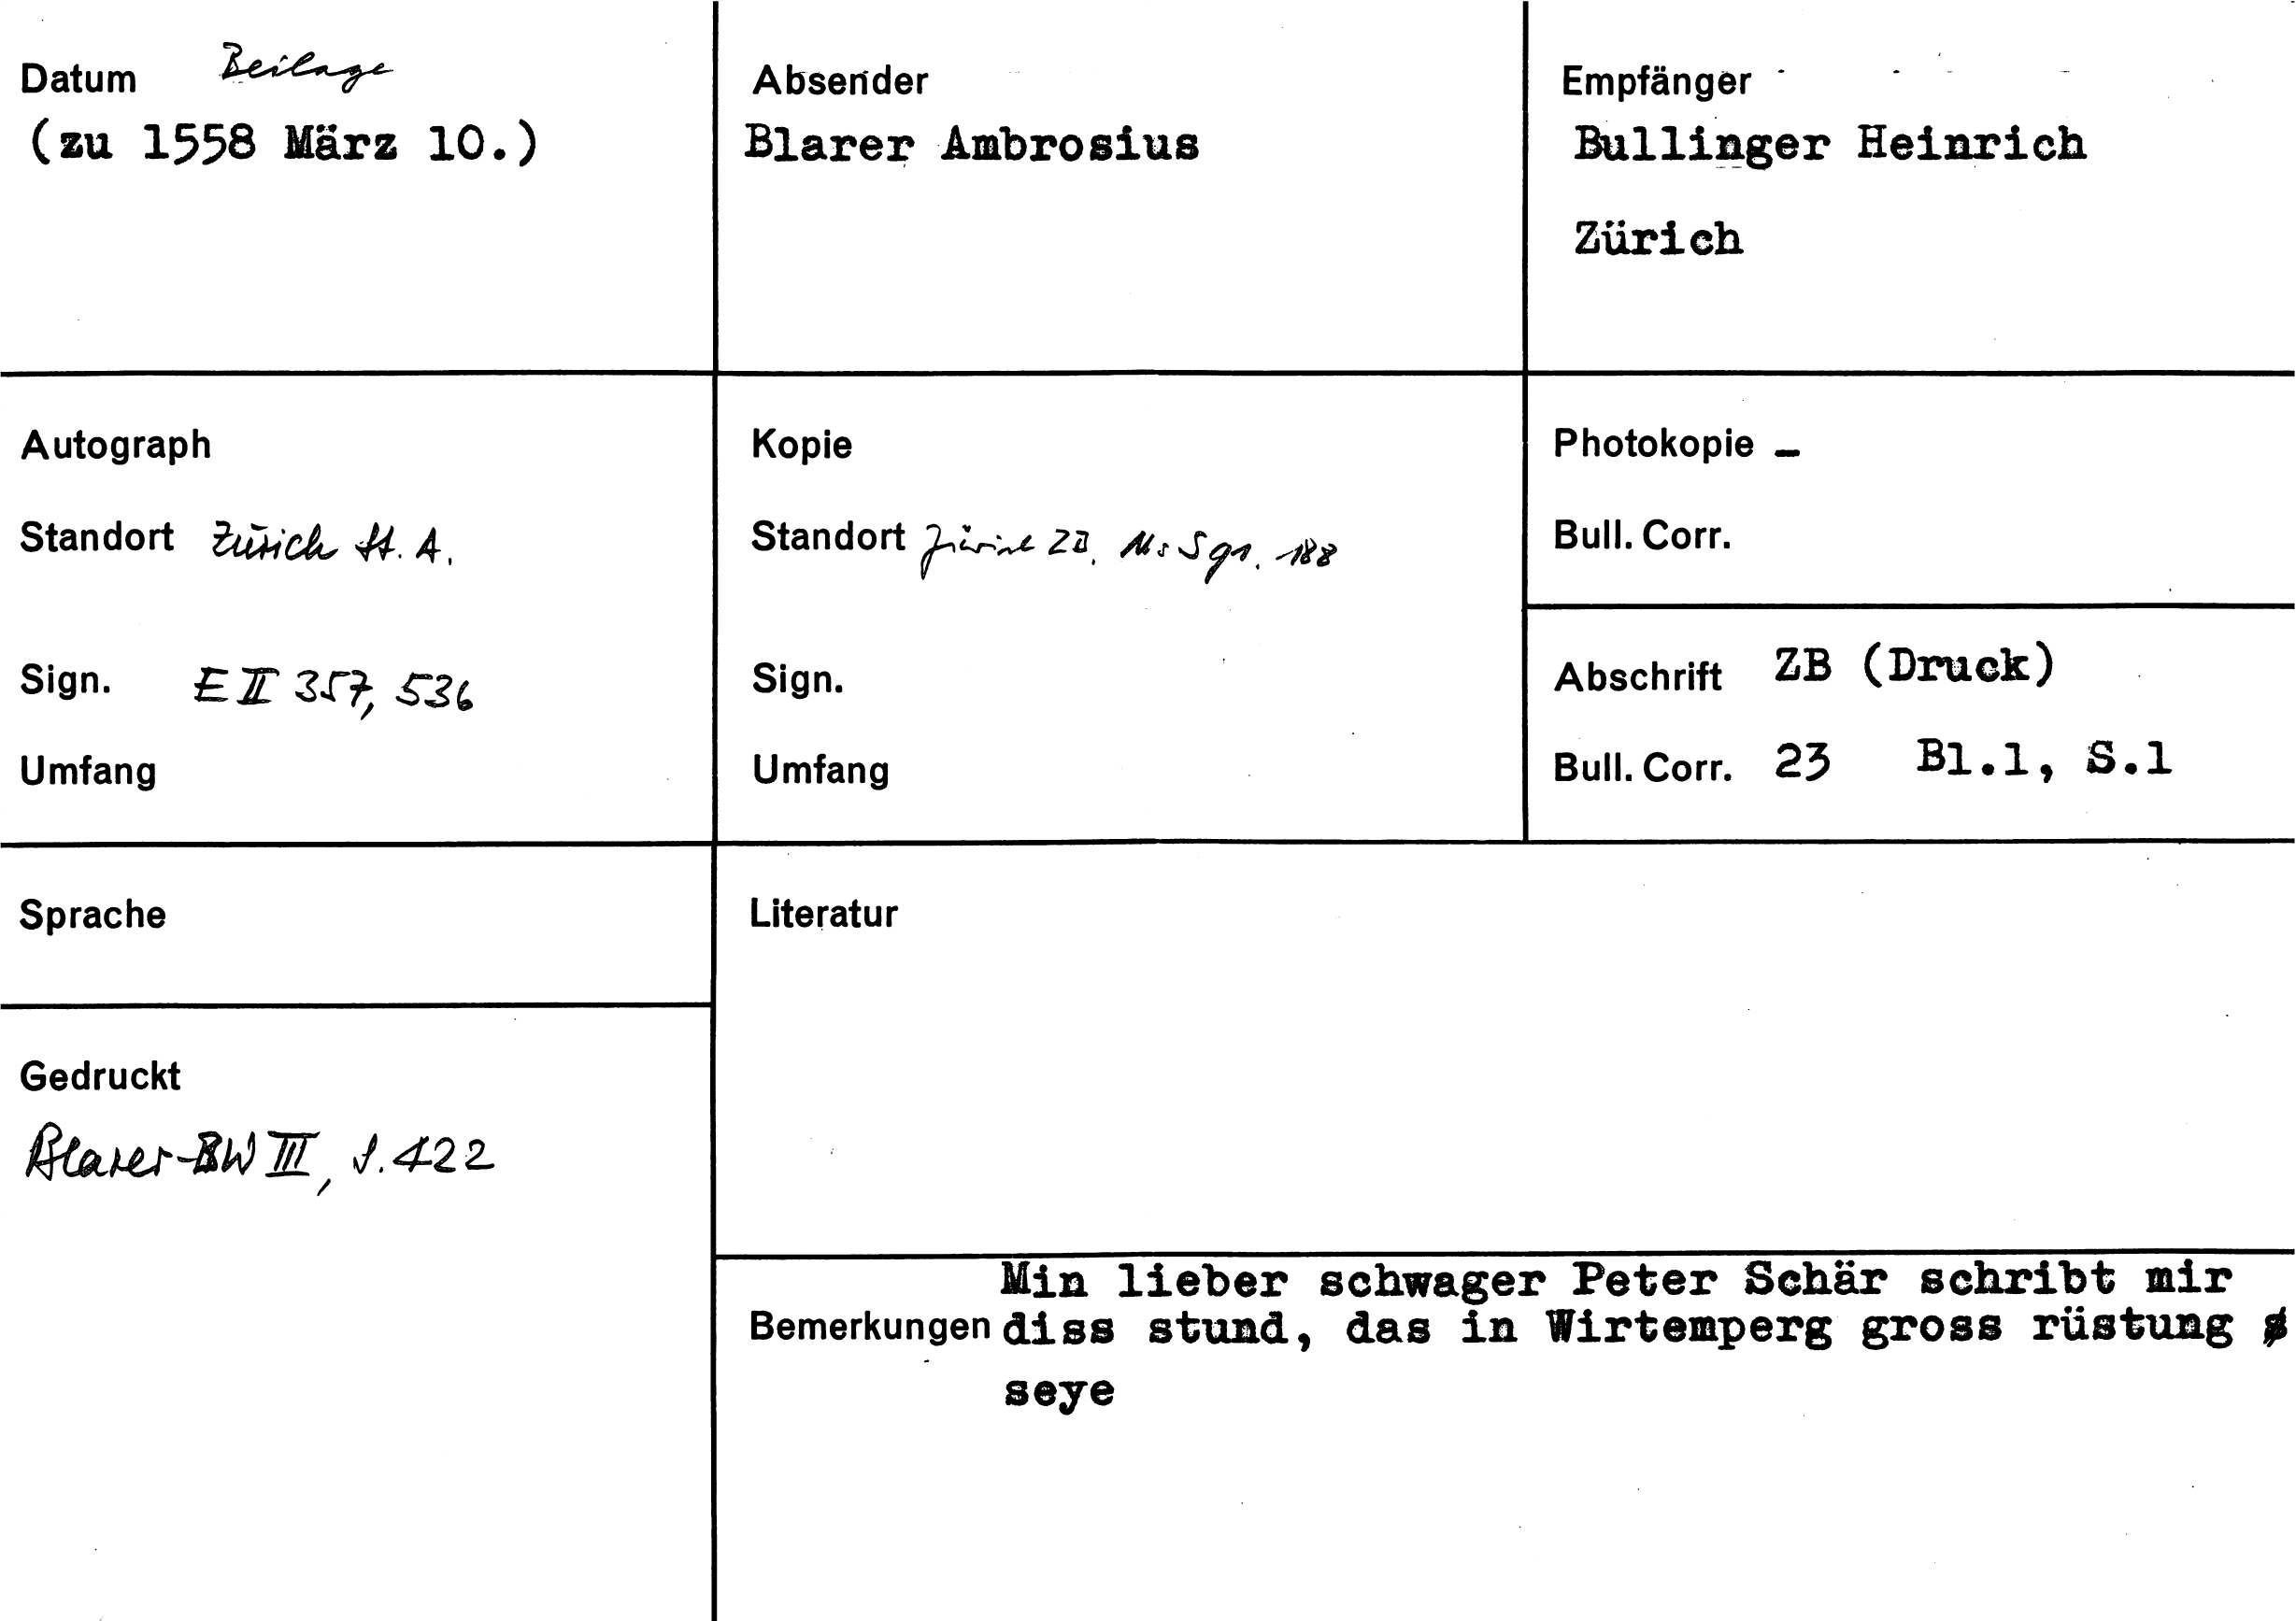 Datum Beilage
(zu 1558 März 10.)
Absender
Blarer Ambrosius
Empfänger
Bullinger Heinrich
Zürich
Autograph
Standort Zürich St. A.
Sign. E II 357, 536
Umfang
Kopie
Standort Zürich ZB. Ms S 91. 188
Sign.
Umfang
Photokopie -
Bull. Corr.
Abschrift ZB (Druck)
Bull. Corr. 23 Bl.1, S.1
Sprache
Literatur
Gedruckt
Blarer-BW III, S. 422
Min lieber schwager Peter Schär schribt mir
Bemerkungen diss stund, das in Wirtemperg gross rüstung
seye